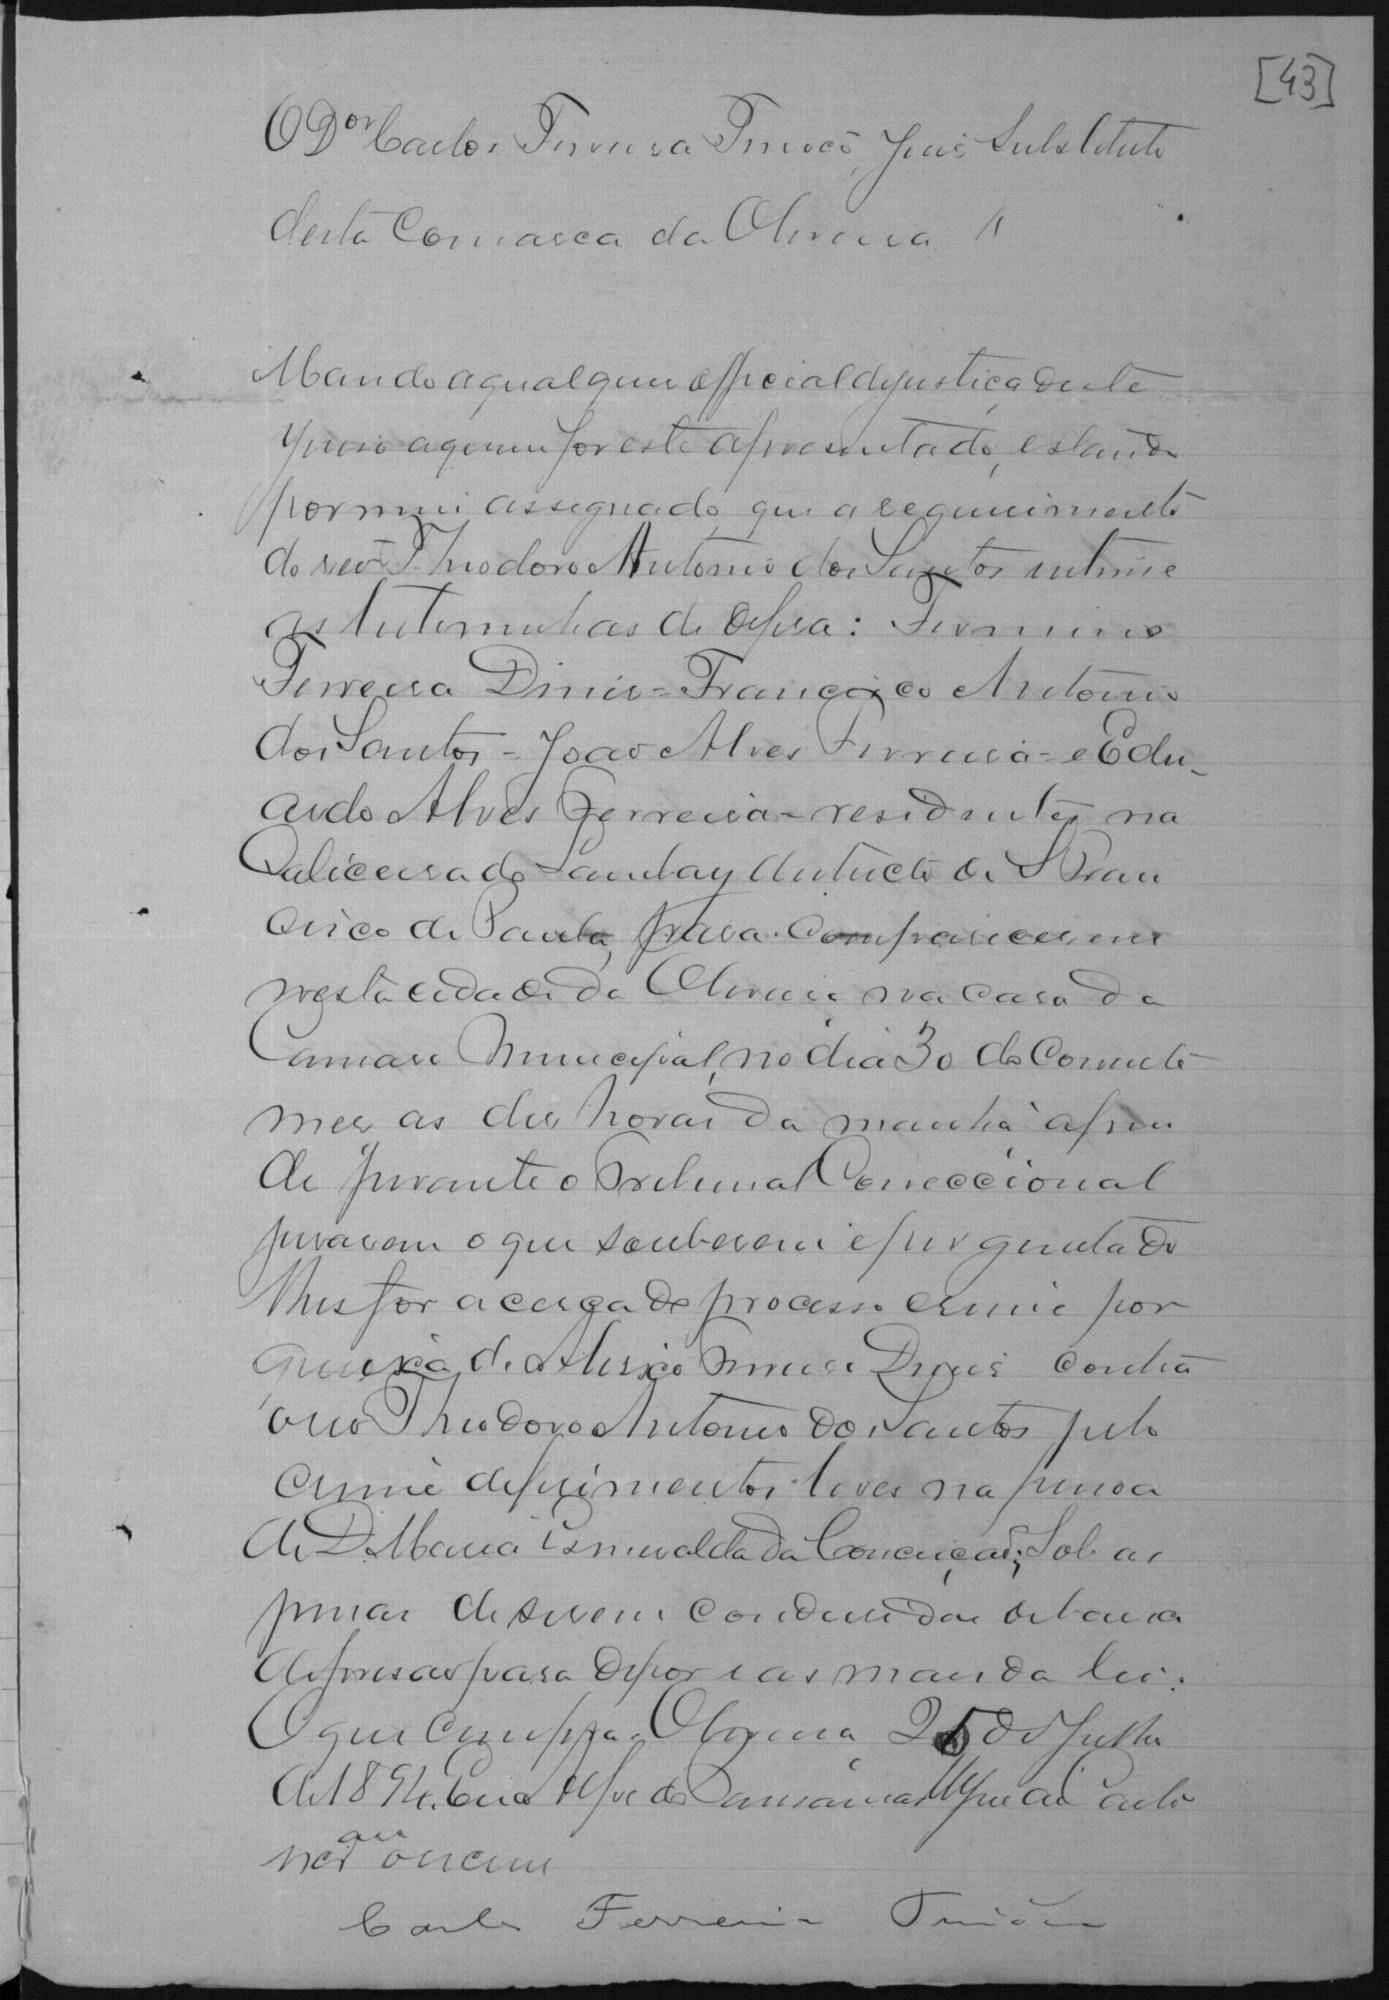 [43]
O Dor Carlos Ferreira Tinoco, Juis Substituto
desta Comarca da Oliveira
Mando a qualquer official de justiça deste
juiso a quem for este apresentado, estando
por mim assignado, que a requerimento
do reo Theodoro Antonio dos Santos intime
as testemunhas de defesa: Firmino
Ferreira Dinis = Francisco Antonio
dos Santos = João Alves Ferreira = e Edu-
ardo Alves Ferreira = residentes na
districto de S Fran
cisco de Paula, para comparecerem
nesta cidade da Oliveira na casa da
Camara Municipal, no dia 30 do Corrente
mes as des horas da manhã afim
de perante o Tribunal Correccional
jurarem o que souberem e perguntado
lhes for acerca do processo crime por
queixa de Ferreira Dinis contra
o reo Theodoro Antonio dos Santos pelo
crime de ferimentos leves na pessoa
de D. Maria Esmeralda da Conceição; Sob as
penas de serem condusidas debaixo
de prisão para depor e as mais da lei.
O que cumpra. Oliveira 25 de Julho
de 1894. Eu
escrevi
Carlos Ferreira Tinôco